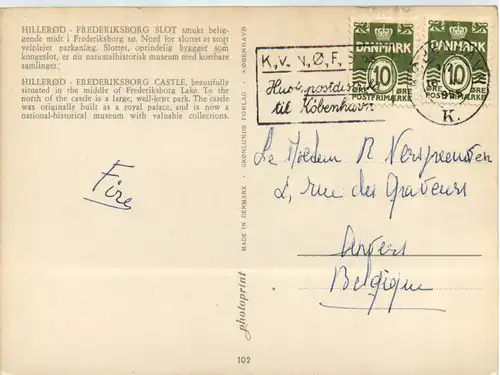 HILLERØD - FREDERIKSBORG SLOT smukt belig-
gende midt i Frederiksborg sø. Nord for slottet et stort
velplejet parkanlæg. Slottet, oprindelig bygget som
kongeslot, er nu nationalhistorisk museum med kostbare
samlinger.
HILLERØD - FREDERIKSBORG CASTLE, beautifully
situated in the middle of Frederiksborg Lake. To the
north of the castle is a large, well-kept park. The castle
was originally built as a royal palace, and is now a
national-historical museum with valuable collections.
Fire
MADE IN DENMARK - GRØNLUNDS FORLAG - KØBENHAVN
photoprint
102
K,V, N,Ø,F,S
Husk postdistrikt
til København
K.
DANMARK
10
ØRE ØRE
POSTFRIMÆRKE
DANMARK
10
ØRE ØRE
POSTFRIMÆRKE
Madame R
2, rue des Graveurs
Anvers
Belgique